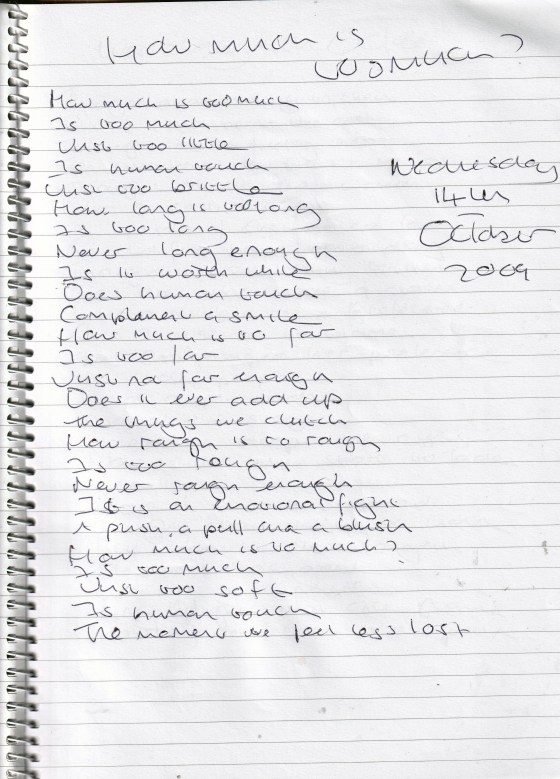 How much is
too much?
How much is too much
Is too much
Just too little
Is human touch
Just too brittle
How long is too long
Is too long
Never long enough
Is it worth while
Does human touch
Complement a smile
How much is to far
Is too far
Just not far enough
Does it ever add up
The things we clutch
How rough is to rough
Is too rough
Never rough enough
It is an emotional fight
A push, a pull and a blush
How much is to much?
Is too much
Just too soft
Is human touch
The moment we feel less lost
Wednesday
14th
October
2009